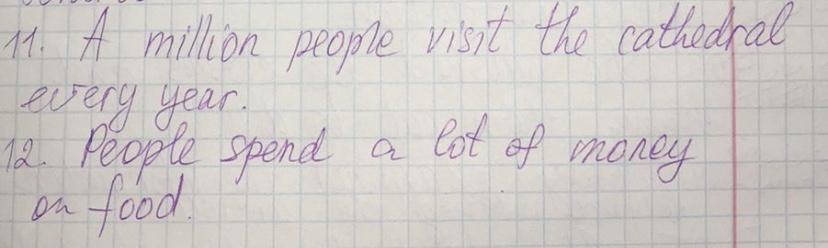 11. A million people visit the cathedral
every year.
12. People spend a lot of money
on food.